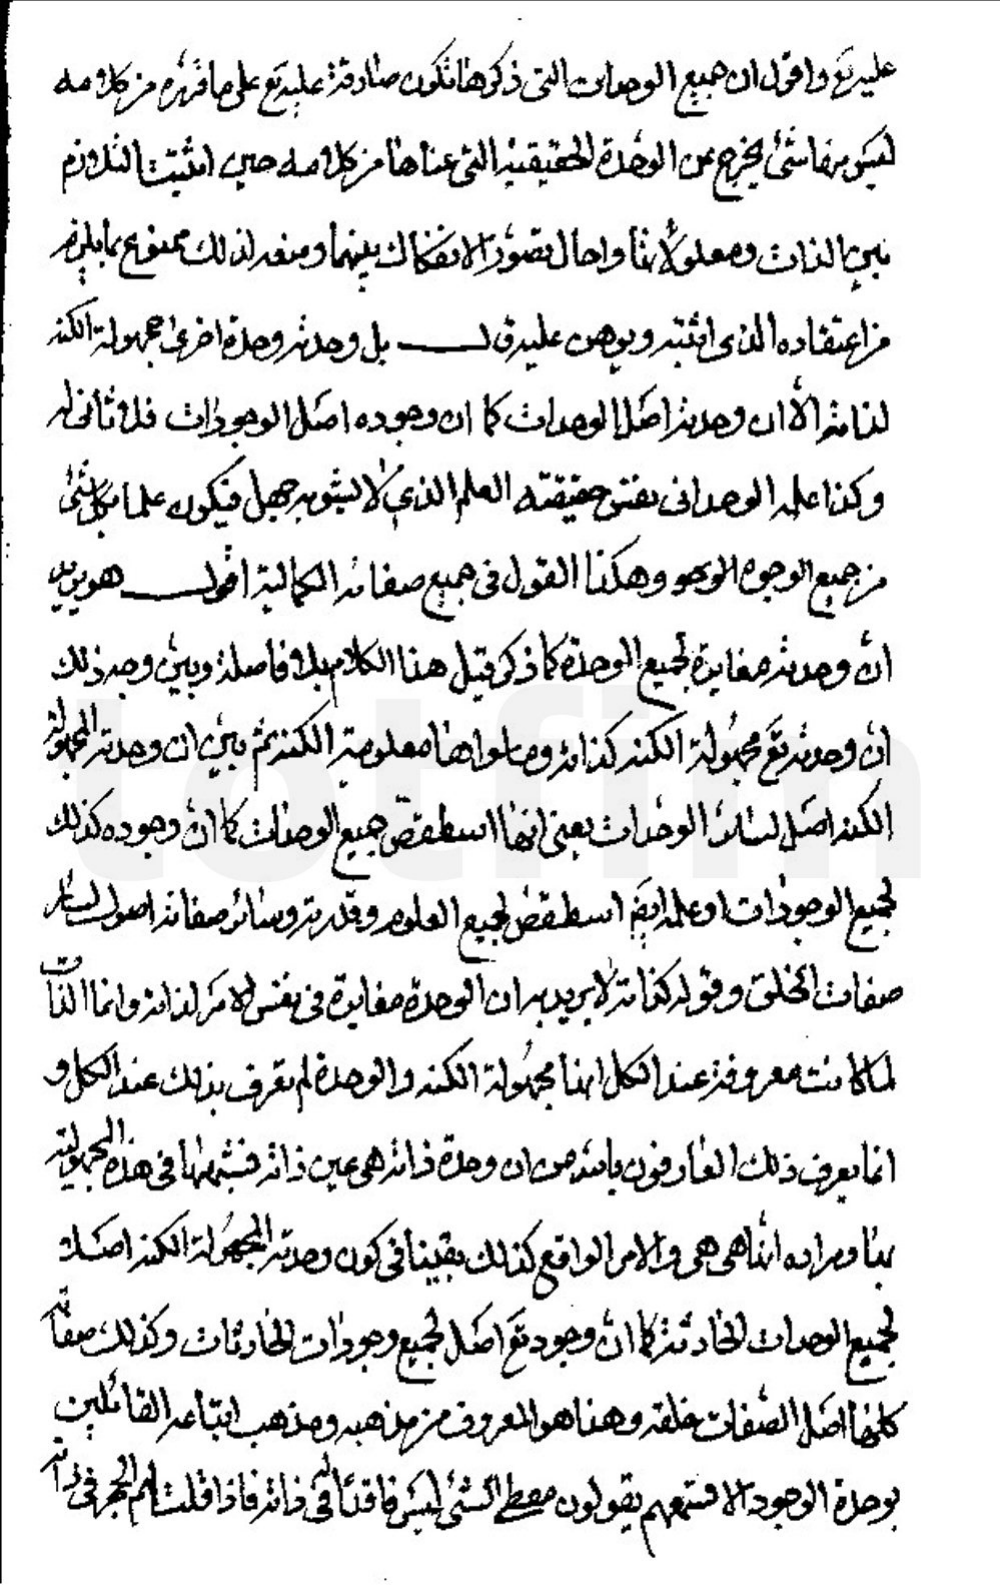 عليه تع واقول ان جميع الوحدات التى ذكرها تكون صادقة عليه تع على ما قرره من كلامه
ليس منها شئ يخرج عن الوحدة الحقيقية التى عناها من كلامه حين اثبت التلازم
بين الذات ومعلولاتها واحال تصور الانفكاك بينهما ومنعه لذلك ممنوع بما يلزم
من اعتقاده الذى اثبته ويوهن عليه قال بل وحدته وحدة اخرى مجهولة الكنه
لذاته الا ان وحدته اصل الوحدات كما ان وجوده اصل الوجودات فلا ثانى له
وكذا علمه الوحدانى نفس حقيقته العلم الذى لا يشوبه جهل فيكون علما بكل شئ
من جميع الوجوه وهكذا القول فى جميع صفاته الكمالية اقول هو يريد
ان وحدته مغايرة لجميع الوحدة كما ذكر قبل هذا الكلام بلا فاصلة وبين وجه ذلك
ان وحدته تع مجهولة الكنه كذاته وما سواها معلومة الكنه ثم بين ان وحدته المجهولة
الكنه اصل لسائر الوحدات يعنى انها اسطقص جميع الوحدات كما ان وجوده كذلك
لجميع الوجودات وعلمه ايضا اسطقص لجميع العلوم وقدرته وسائر صفاته اصول لسائر
صفات الخلق وقوله كذاته لا يريد به ان الوحدة مغايرة فى نفس الامر لذاته وانما الذات
لما كانت معروفة عند الكل انها مجهولة الكنه والوحدة لم تعرف بذلك عند الكل و
انما يعرف ذلك العارفون بالله من ان وحدة ذاته هى عين ذاته فشبهها فى هذه المجهولية
بها ومراده انها هى هى والامر الواقع كذلك يقينا فى كون وحدته المجهولة الكنه اصلا
لجميع الوحدات الحادثة كما ان وجوده تع اصل لجميع وجودات الحادثات وكذلك صفاته
كلها اصل الصفات خلقه وهذا هو المعروف من مذهبه ومذهب اتباعه القائلين
بوحدة الوجود الا تسمعهم يقولون معطى الشئ ليس فاقدا له فى ذاته فاذا قلت لهم الحجر فى ذاته